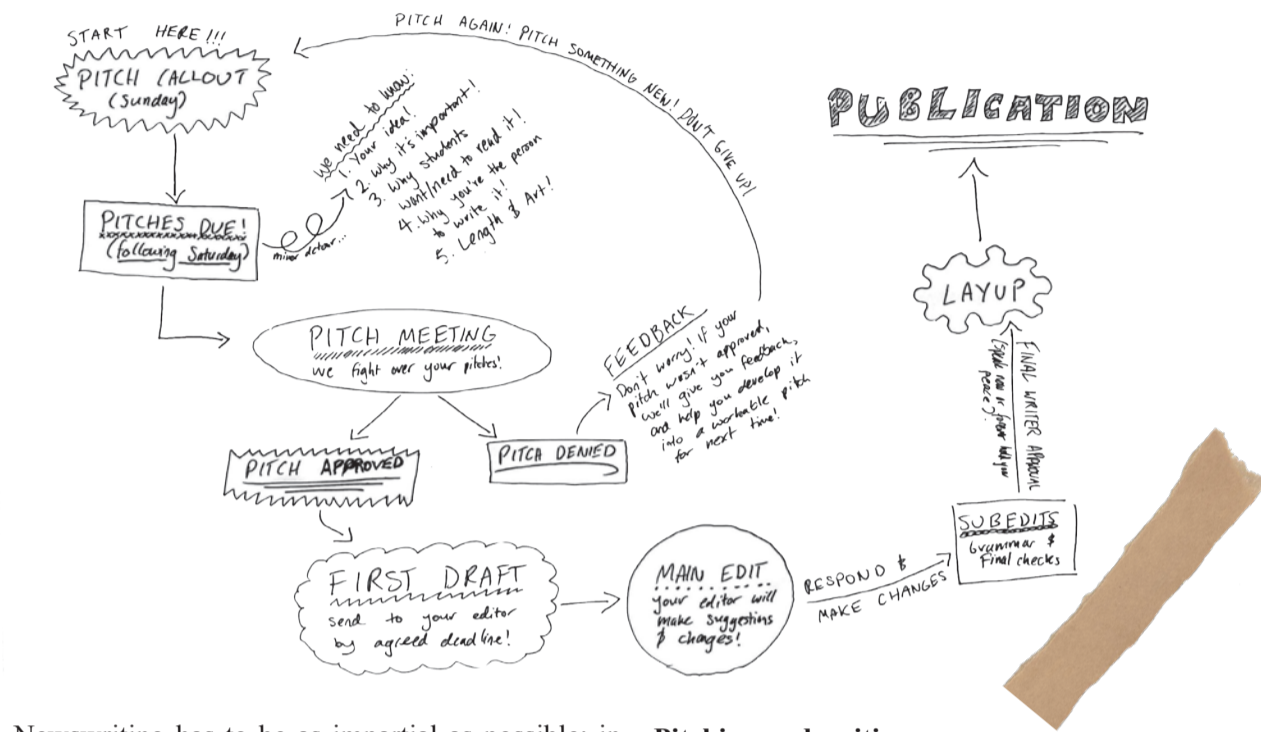 START HERE!!!
PITCH CALLOUT
(Sunday)
PITCHES DUE!
(following Saturday)
minor detour...
We need to know:
1. Your idea!
2. Why it's important!
3. Why students
want/need to read it!
4. Why you're the person
to write it!
5. Length & Art!
PITCH MEETING
we fight over your pitches!
PITCH APPROVED
PITCH DENIED
FEEDBACK
Don't worry! If your
pitch wasn't approved,
we'll give you feedback,
and help you develop it
into a workable pitch
for next time!
PITCH AGAIN! PITCH SOMETHING NEW! DON'T GIVE UP!
FIRST DRAFT
send to your editor
by agreed deadline!
MAIN EDIT
your editor will
make suggestions
& changes!
RESPOND &
MAKE CHANGES
SUBEDITS
Grammar &
Final checks
FINAL WRITER APPROVAL
(speak now or forever hold your
peace)
LAYUP
PUBLICATION
Newswriting has to be as impartial as possible; in